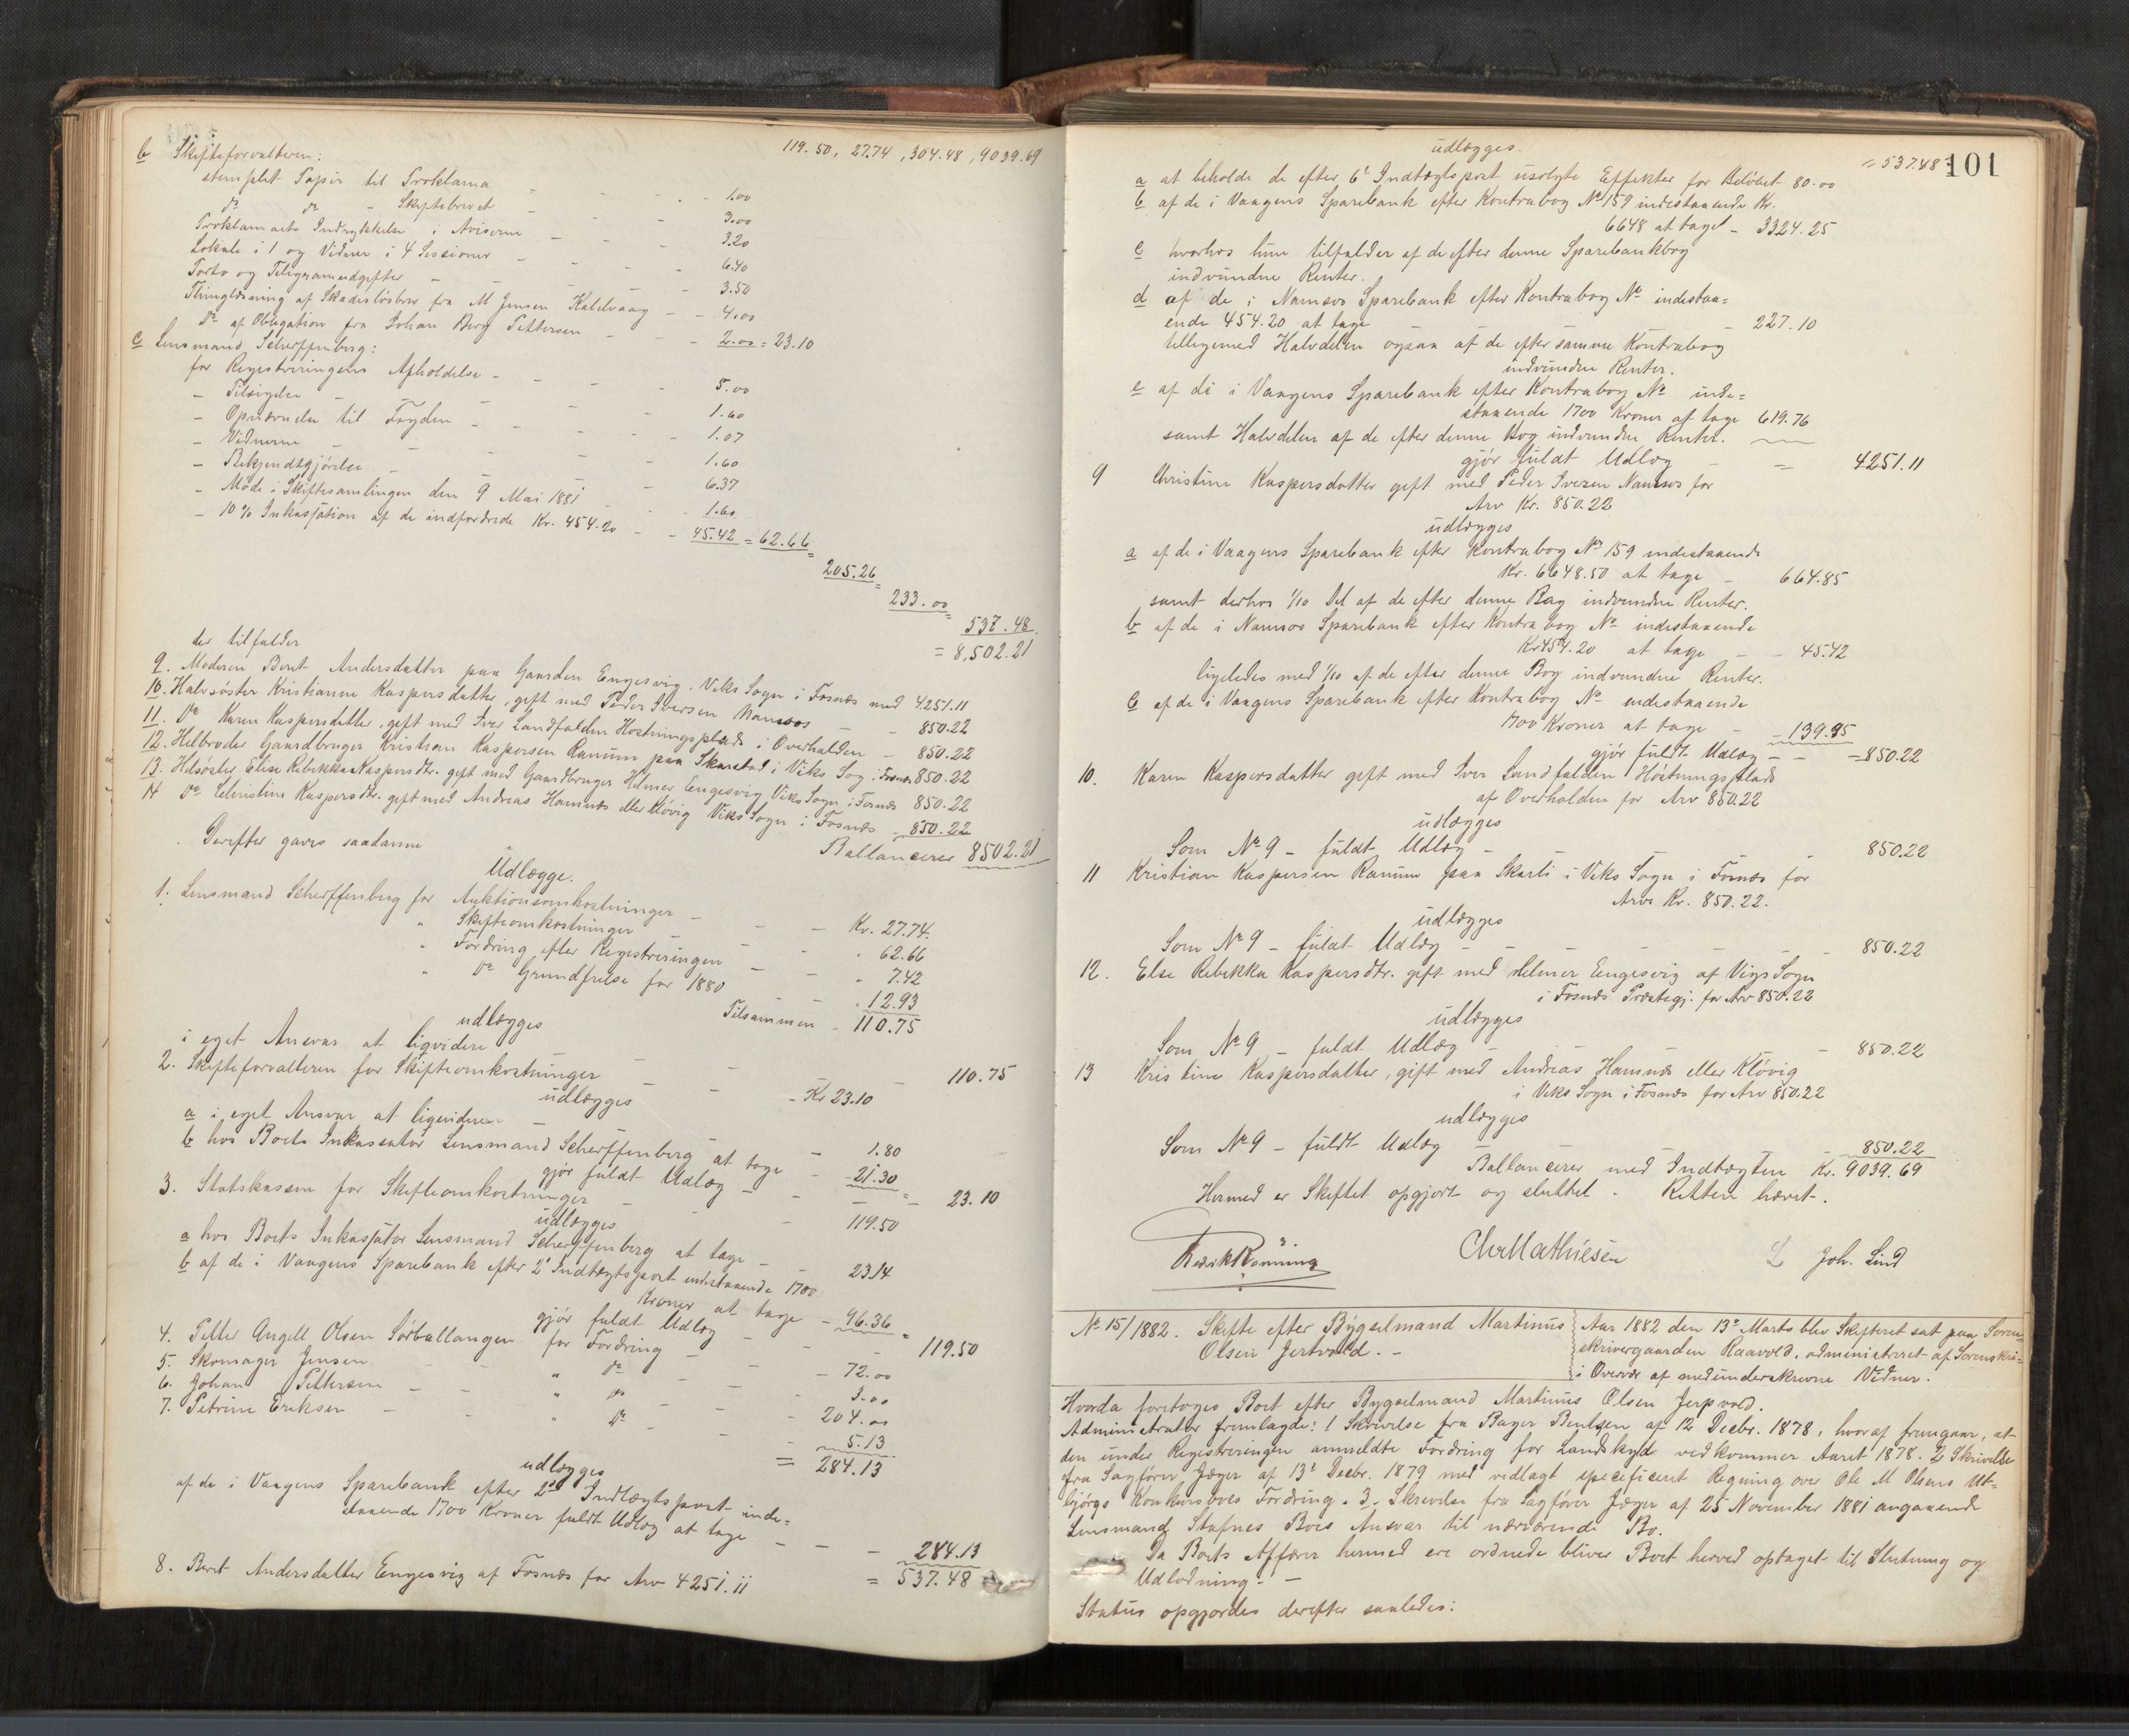 119.50, 27.74, 304.48, 9039.69
b Skifteforvalteren:
stemplet Papir til Proklama - - - 1.00
Do do - Skiftebrevet - - - 3.00
Proklamaets Indrykkelse i Aviserne - - - 3.20
Lokale i 1 og Vidner i 4 Sessioner - - - 6.40
Porto og Telegramudgifter - - - 3.50
Thinglæsning af Skadesløsbrev fra M Jensen Kalvaag - - 4.00
Do af Obligation fra Johan Berg Pettersen - - 2.00 = 23.10
c Lensmand Scherffenberg:
for Registreringens Afholdelse - - - 5.00
- Tilsigelse - - - 1.60
- Opnævnelse til Fogden - - - 1.07
- Vidnerne - - - 1.60
- Bekjendtgjörelse - - - 6.37
- Möde i Skiftesamlingen den 9 Mai 1881 - 1.60
- 10% Inkassation af de indfordrede Kr. 454.20 - - 45.42 = 62.66
205.26
233.00
537.48
= 8,502.21
der tilfalder
9. Moderen Berit Andersdatter paa Gaarden Engesvig, Viks Sogn i Fosnæs med 4251.11
10. Halvsöster Kristianne Kaspersdatter, gift med Peder Iversen Namsos - - 850.22
11. Do Karen Kaspersdatter, gift med Iver Landfalden Höstningsplads i Overhalden - 850.22
12. Helbroder Gaardbruger Kristian Kaspersen Ranum paa Skarstad i Viks Sog. i Fosnæs 850.22
13. Helsöster Elise Rebekka Kaspersdtr. gift med Gaardbruger Helmer Engesvig Viks Sogn i Fosnæs 850.22
14 Do Christine Kaspersdtr. gift med Andreas Hamnæs eller Klövig Viks Sogn i Fosnæs - 850.22
Ballancerer 8502.21
Derefter gaves saadanne
Udlægge.
1. Lensmand Scherffenberg for Auktionsomkostninger - - - Kr. 27.74.
" Skifteomkostninger - - . 62.66
" Fordring efter Registreringen - - . 7.42
" Do Grundfrelse for 1880 - - . 12.93
Tilsammen - 110.75
udlægges
i eget Ansvar at liqvidere - - - 110.75
2. Skifteforvalteren for Skifteomkostninger - - - Kr 23.10
udlægges
a i eget Ansvar at liqvidere - - 1.80
b hos Boets Inkassator Lensmand Scherffenberg at tage - 21.30
gjör fuldt Udlæg - - - 23.10
3. Statskassen for Skifteomkostninger - - 119.50
udlægges
a hos Boets Inkassator Lensmand Scherffenberg at tage - 23.14
b af de i Vaagens Sparebank efter 2' Indtægtspost indestaaende 1700
Kroner at tage - 96.36
gjör fuldt Udlæg - - - 119.50
4. Petter Angell Olsen Sörballangen for Fordring - - - 72.00
5. Skomager Jensen - " Do - - 3.00
6. Johan Pettersen - - " Do - - 204.00
7. Petrine Eriksen - - " Do - - 5.13
= 284.13
udlægges
af de i Vaagens Sparebank efter 2den Indtægtspost inde=
staaende 1700 Kroner fuldt Udlæg at tage - - - 284.13
= 537.48
8. Berit Andersdatter Engesvig af Fosnæs for Arv 4251.11
101
= 537.48
udlægges.
a at beholde de efter 6te Indtægtspost usolgte Effekter for Belöbet 80.00
b af de i Vaagens Sparebank efter Kontrabog No 159 indestaaende Kr.
6648 at tage - 3324.25
c hvorhos hun tilfalder af de efter denne Sparebankbog
indvundne Renter.
d af de i Namsos Sparebank efter Kontrabog No indestaa=
ende 454.20 at tage - 227.10
tilligemed Halvdelen ogsaa af de efter samme Kontrabog
indvundne Renter.
e af de i Vaagens Sparebank efter Kontrabog No inde=
staaende 1700 Kroner at tage 619.76
samt Halvdelen af de efter denne Bog indvundne Renter.
gjör fuldt Udlæg - = 4251.11
9 Christine Kaspersdatter gift med Peder Iversen Namsos for
Arv Kr. 850.22
udlægges
a af de i Vaagens Sparebank efter Kontrabog No 159 indestaaende
Kr. 6648.50 at tage - 664.85
samt derhos 1/10 Del af de efter denne Bog indvundne Renter.
b af de i Namsos Sparebank efter Kontrabog No indestaaende
Kr 454.20 at tage - - 45.42
ligeledes med 1/10 af de efter denne Bog indvundne Renter.
c af de i Vaagens Sparebank efter Kontrabog No indestaaende
1700 Kroner at tage - - 139.95
gjör fuldt Udlæg - - = 850.22
10. Karen Kaspersdatter gift med Iver Landfalden Höstningsplads
af Overhalden for Arv 850.22
udlægges
Som No 9 - fuldt Udlæg - - 850.22
11 Kristian Kaspersen Ranum paa Skarli i Viks Sogn i Fosnæs for
Arv Kr. 850.22.
udlægges
Som No 9 - fuldt Udlæg - - - 850.22
12. Else Rebekka Kaspersdtr. gift med Helmer Eengesvig af Vigs Sogn
i Fosnæs Præstegj. for Arv 850.22
udlægges
Som No 9 - fuldt Udlæg - - 850.22
13 Kristine Kaspersdatter, gift med Andreas Hamnæs eller Klövig
i Viks Sogn i Fosnæs for Arv 850.22
udlægges
Som No 9 - fuldt Udlæg - 850.22
Ballancerer med Indtægten Kr. 9039.69
Hermed er Skiftet opgjort og sluttet. Retten hævet.
Fredrik Rönning
Chr Mathiesen
L Joh. Lind
No 15/1882. Skifte efter Bygselmand Martinus
Olsen Jertvold. -
Aar 1882 den 13de Marts blev Skifteret sat paa Soren=
skrivergaarden Raavold, administreret af Sorenskri=
i Overvær af medunderskrevne Vidner.
Hvorda foretoges Boet efter Bygselmand Martinus Olsen Jerpvold.
Administrator fremlagde: 1 Skrivelse fra Bager Bentzen af 12 Decbr. 1878, hvoraf fremgaar, at
den under Registreringen anmeldte Fordring for Landskyld vedkommer Aaret 1878. 2 Skrivelse
fra Sagförer Jæger af 13de Decbr. 1879 med vedlagt specificeret Regning over Ole M Olsens Ut=
björgs Konkursboes Fordring. 3. Skrivelse fra Sagförer Jæger af 25 November 1881 angaaende
Lensmand Stafnes Boes Ansvar til nærværende Bo.
Da Boets Affærer hermed ere ordnede bliver Boet herved optaget til Slutning og
Udlodning. -
Status opgjordes derefter saaledes: